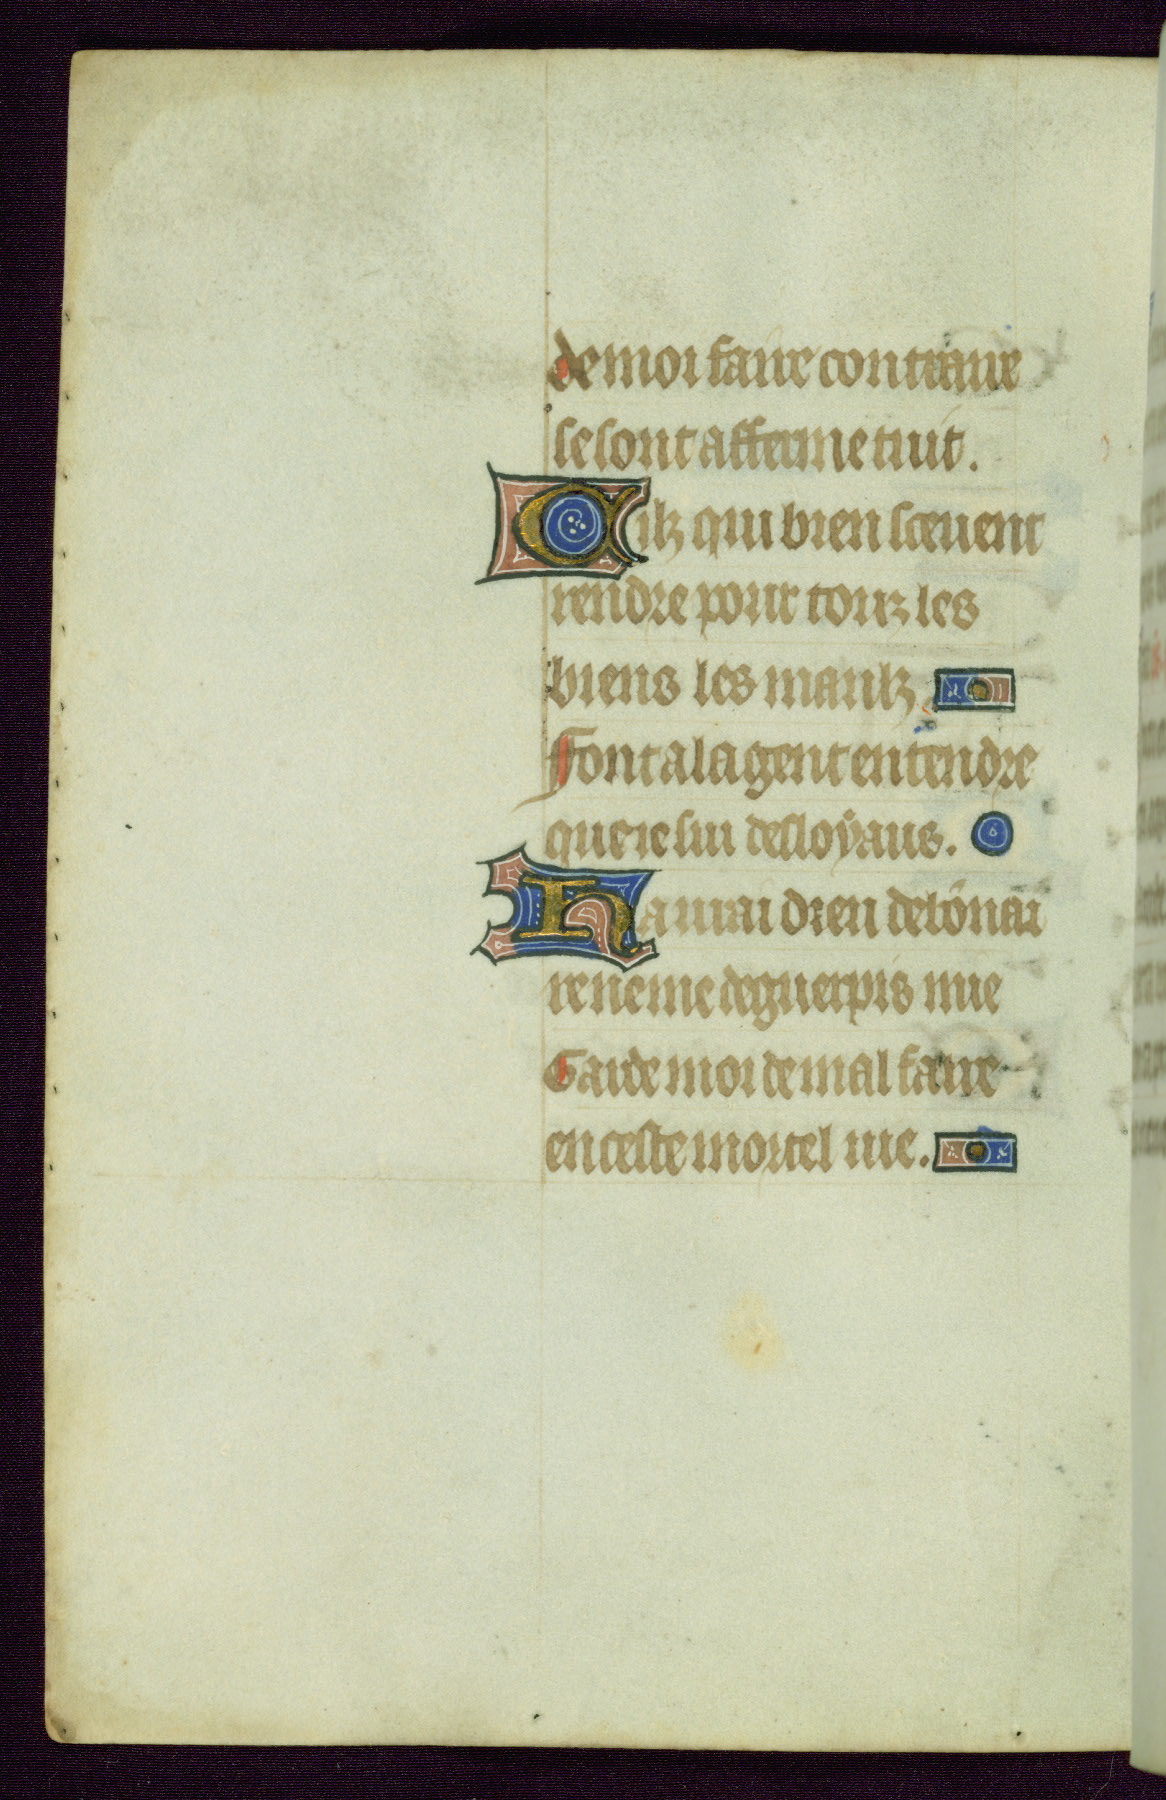 de moi faire contraire
se sont afferme tuit.
Cilz qui bien scevent
rendre pour touz les
biens les maulz
font a la gent entendre
que ie sui desloyaus.
Ha vrai dieu debonai
re ne me deguerpis mie
Garde moi de mal faire
en ceste mortel vie.